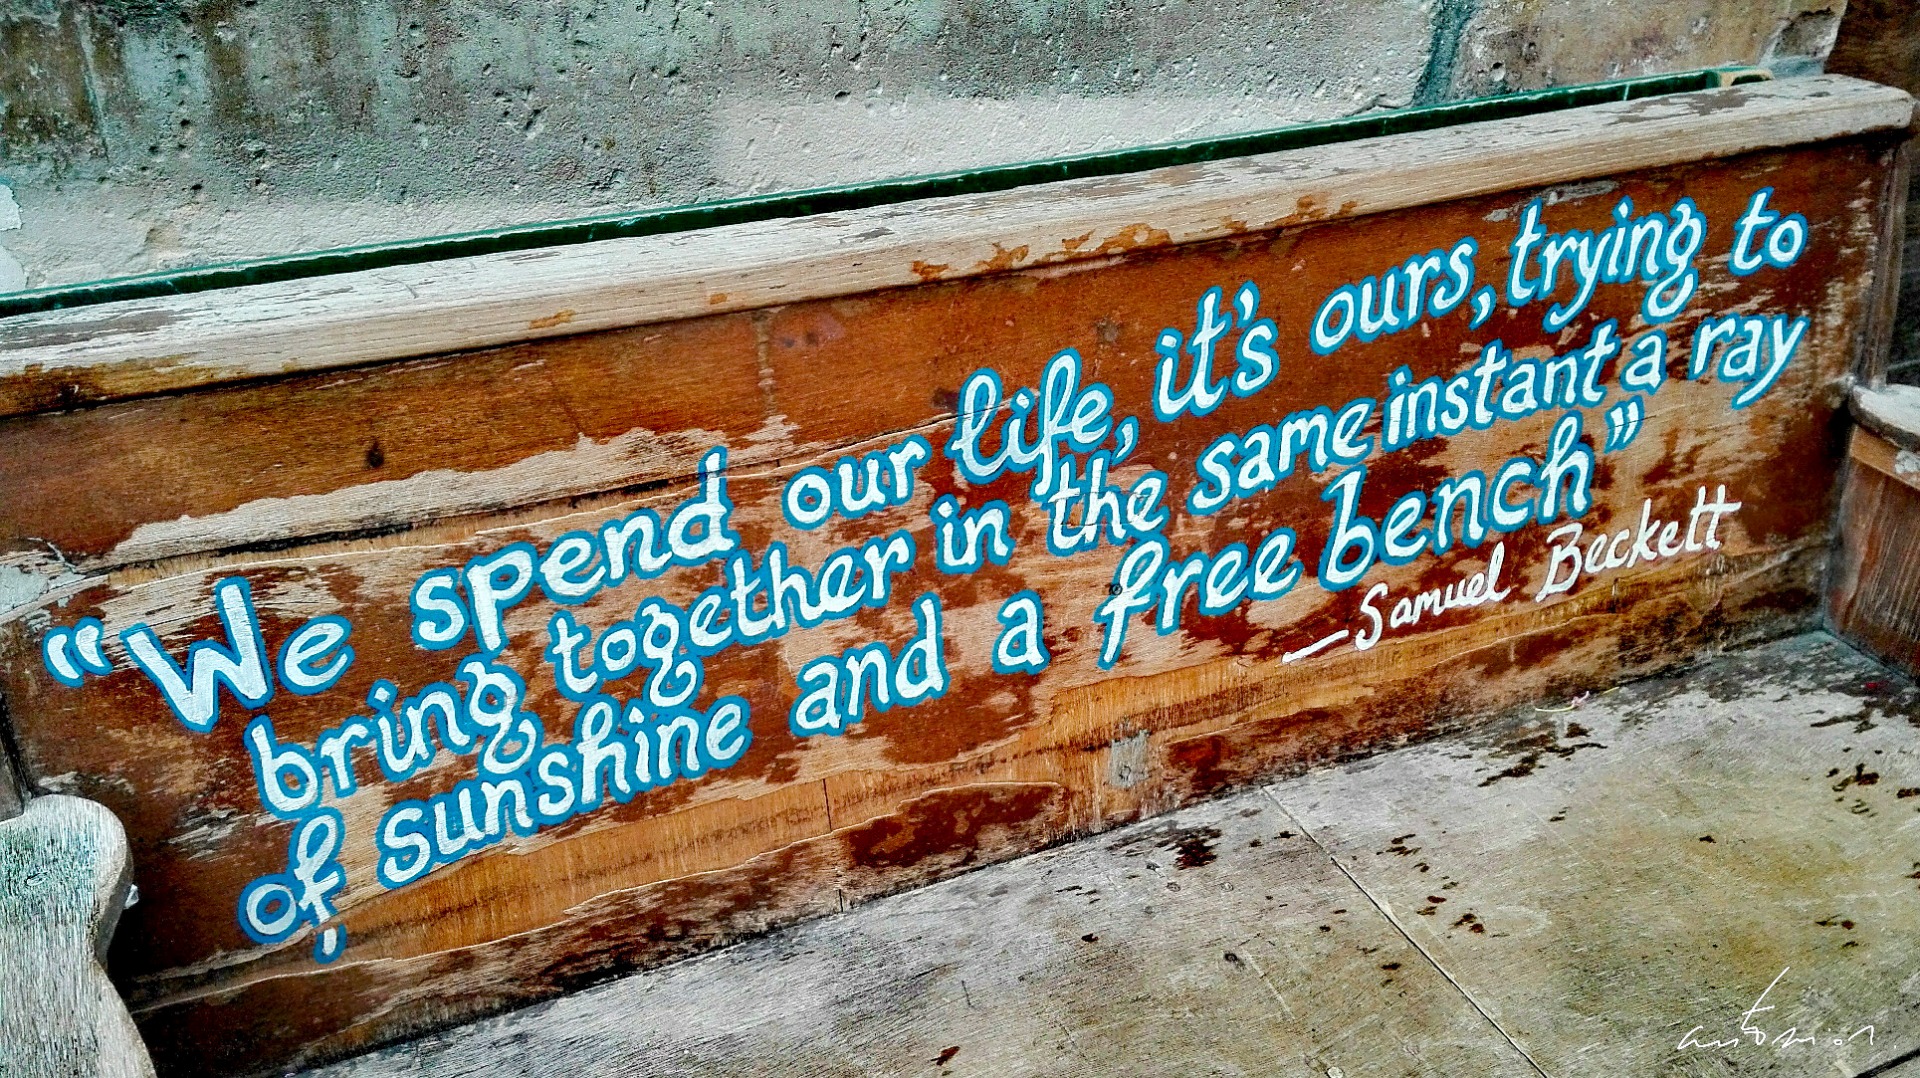 “We spend our life, it's ours, trying to
bring together in the same instant a ray
of sunshine and a free bench”
—Samuel Beckett